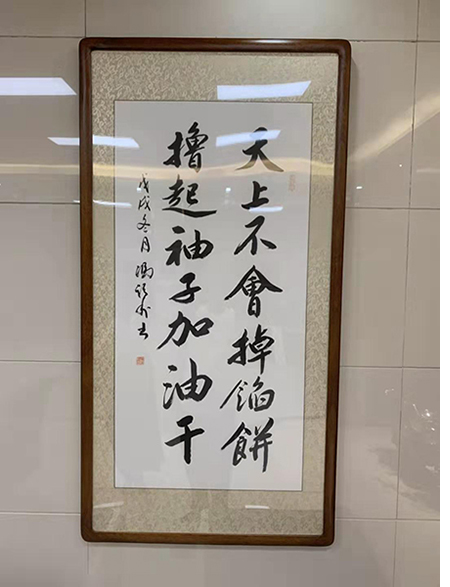 天上不會掉餡餅
撸起袖子加油干
戊戌冬月